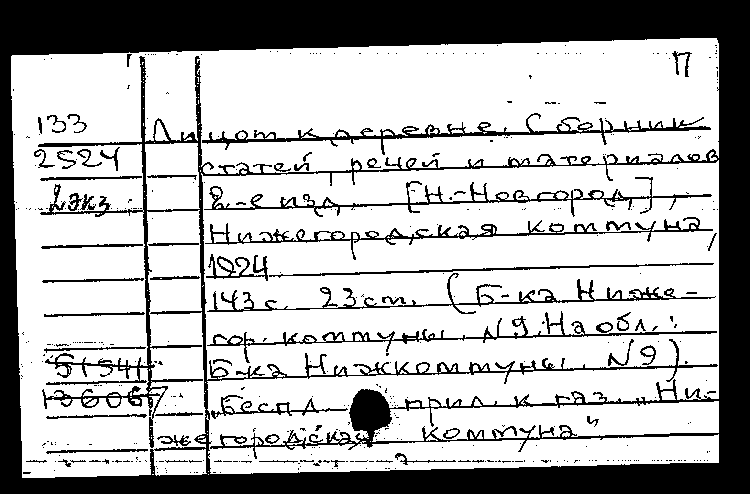 П
133 Лицом к деревне. Сборник
2524 статей, речей и материалов
2 экз. 2-е изд. [Н.-Новгород],
Нижегородская коммуна,
1924.
143 с. 23 см. (Б-ка Ниже-
гор. коммуны. N9. На обл.:
51541 Б-ка Нижкоммуны. N9).
136067 „Беспл. прил. к газ. „Ни-
жегородская коммуна"